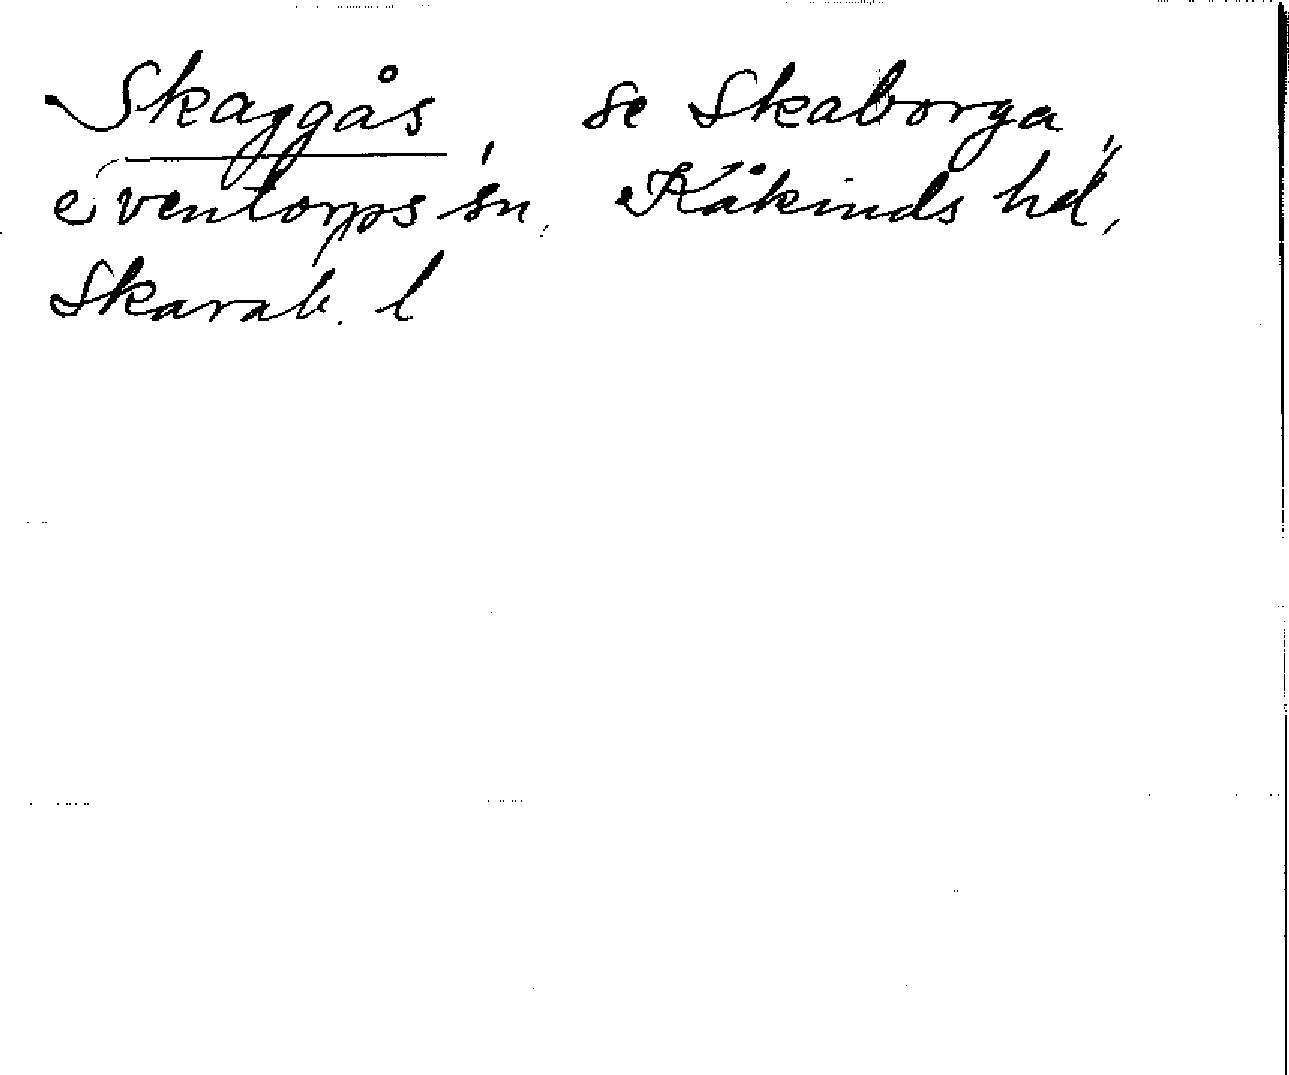 Skaggås, se Skaborga,
Sventorps sn, Kåkinds hd,
Skarab. l